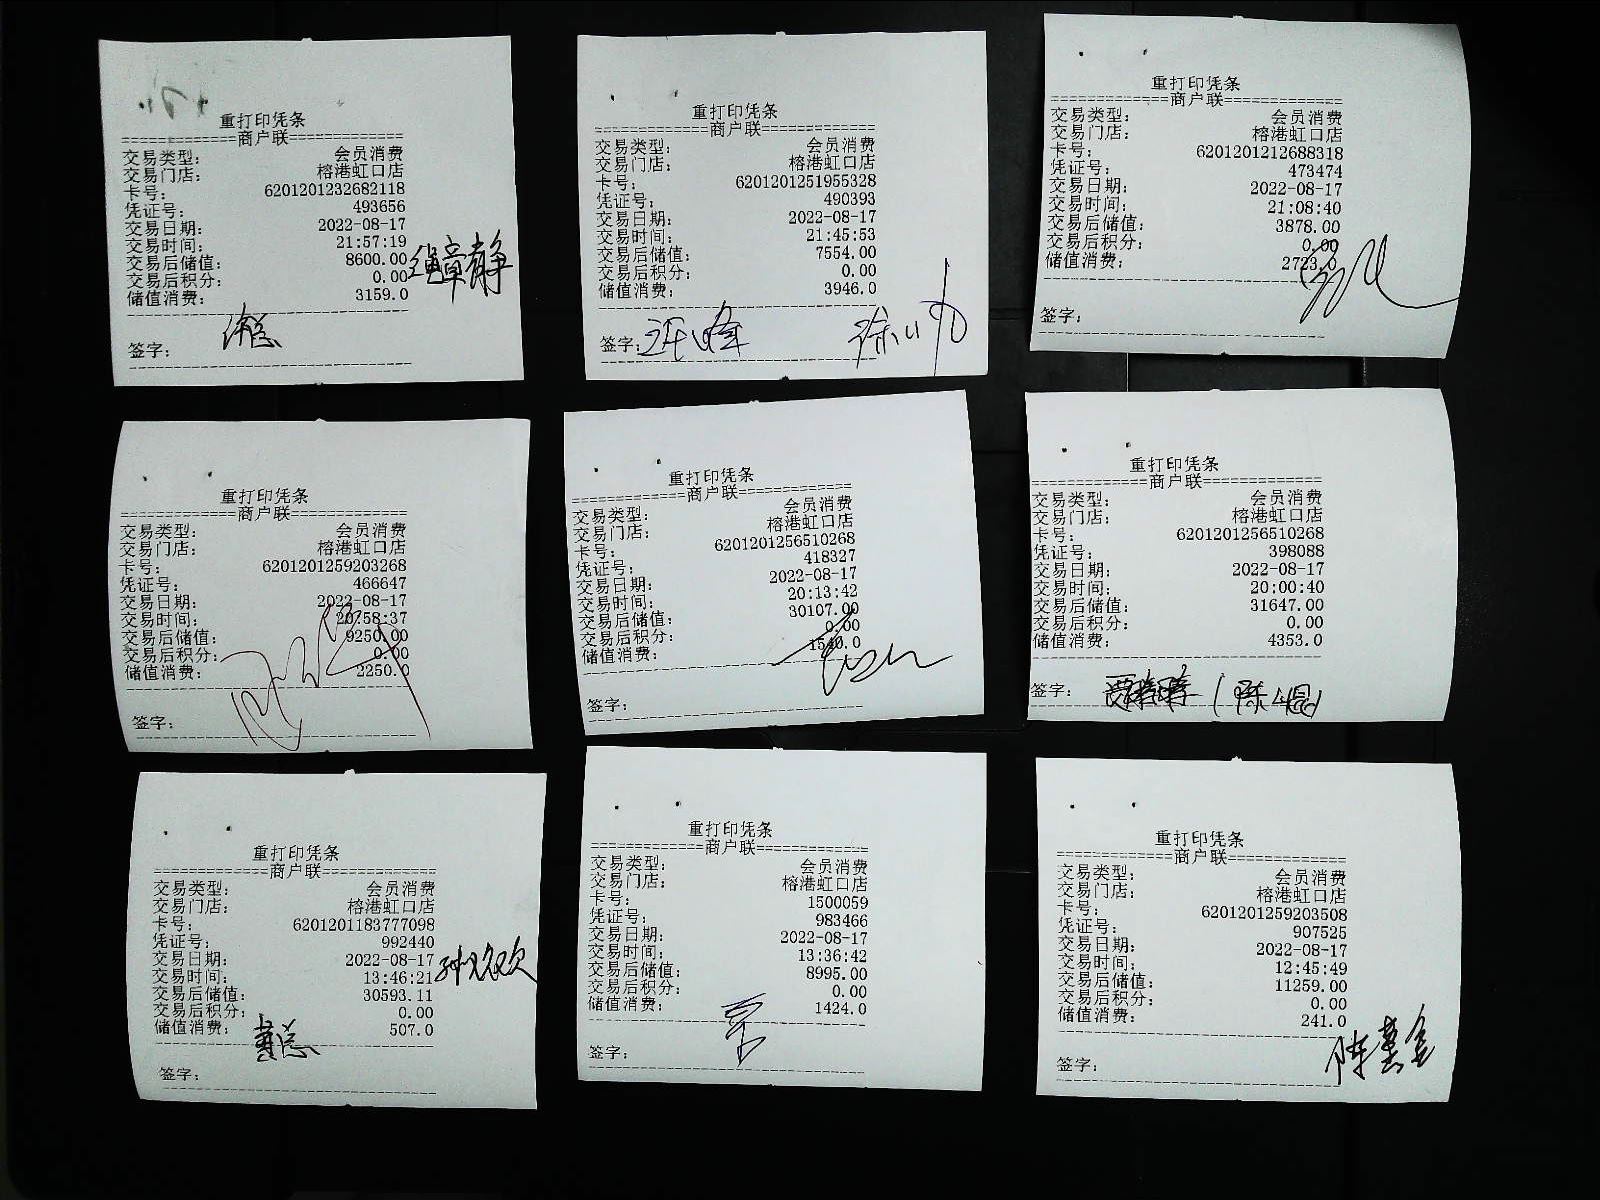 重打印凭条
=============商户联=============
交易类型: 会员消费
交易门店: 榕港虹口店
卡号: 6201201232682118
凭证号: 493656
交易日期: 2022-08-17
交易时间: 21:57:19
交易后储值: 8600.00
交易后积分: 0.00
储值消费: 3159.0
签字:
重打印凭条
=============商户联=============
交易类型: 会员消费
交易门店: 榕港虹口店
卡号: 6201201251955328
凭证号: 490393
交易日期: 2022-08-17
交易时间: 21:45:53
交易后储值: 7554.00
交易后积分: 0.00
储值消费: 3946.0
签字:
重打印凭条
=============商户联=============
交易类型: 会员消费
交易门店: 榕港虹口店
卡号: 6201201212688318
凭证号: 473474
交易日期: 2022-08-17
交易时间: 21:08:40
交易后储值: 3878.00
交易后积分: 0.00
储值消费: 2723.0
签字:
重打印凭条
=============商户联=============
交易类型: 会员消费
交易门店: 榕港虹口店
卡号: 6201201259203268
凭证号: 466647
交易日期: 2022-08-17
交易时间: 20:58:37
交易后储值: 9250.00
交易后积分: 0.00
储值消费: 2250.0
签字:
重打印凭条
=============商户联=============
交易类型: 会员消费
交易门店: 榕港虹口店
卡号: 6201201256510268
凭证号: 418327
交易日期: 2022-08-17
交易时间: 20:13:42
交易后储值: 30107.00
交易后积分: 0.00
储值消费: 1540.0
签字:
重打印凭条
=============商户联=============
交易类型: 会员消费
交易门店: 榕港虹口店
卡号: 6201201256510268
凭证号: 398088
交易日期: 2022-08-17
交易时间: 20:00:40
交易后储值: 31647.00
交易后积分: 0.00
储值消费: 4353.0
签字:
重打印凭条
=============商户联=============
交易类型: 会员消费
交易门店: 榕港虹口店
卡号: 6201201183777098
凭证号: 992440
交易日期: 2022-08-17
交易时间: 13:46:21
交易后储值: 30593.11
交易后积分: 0.00
储值消费: 507.0
黄总
签字:
重打印凭条
=============商户联=============
交易类型: 会员消费
交易门店: 榕港虹口店
卡号: 1500059
凭证号: 983466
交易日期: 2022-08-17
交易时间: 13:36:42
交易后储值: 8995.00
交易后积分: 0.00
储值消费: 1424.0
签字:
重打印凭条
=============商户联=============
交易类型: 会员消费
交易门店: 榕港虹口店
卡号: 6201201259203508
凭证号: 907525
交易日期: 2022-08-17
交易时间: 12:45:49
交易后储值: 11259.00
交易后积分: 0.00
储值消费: 241.0
签字: